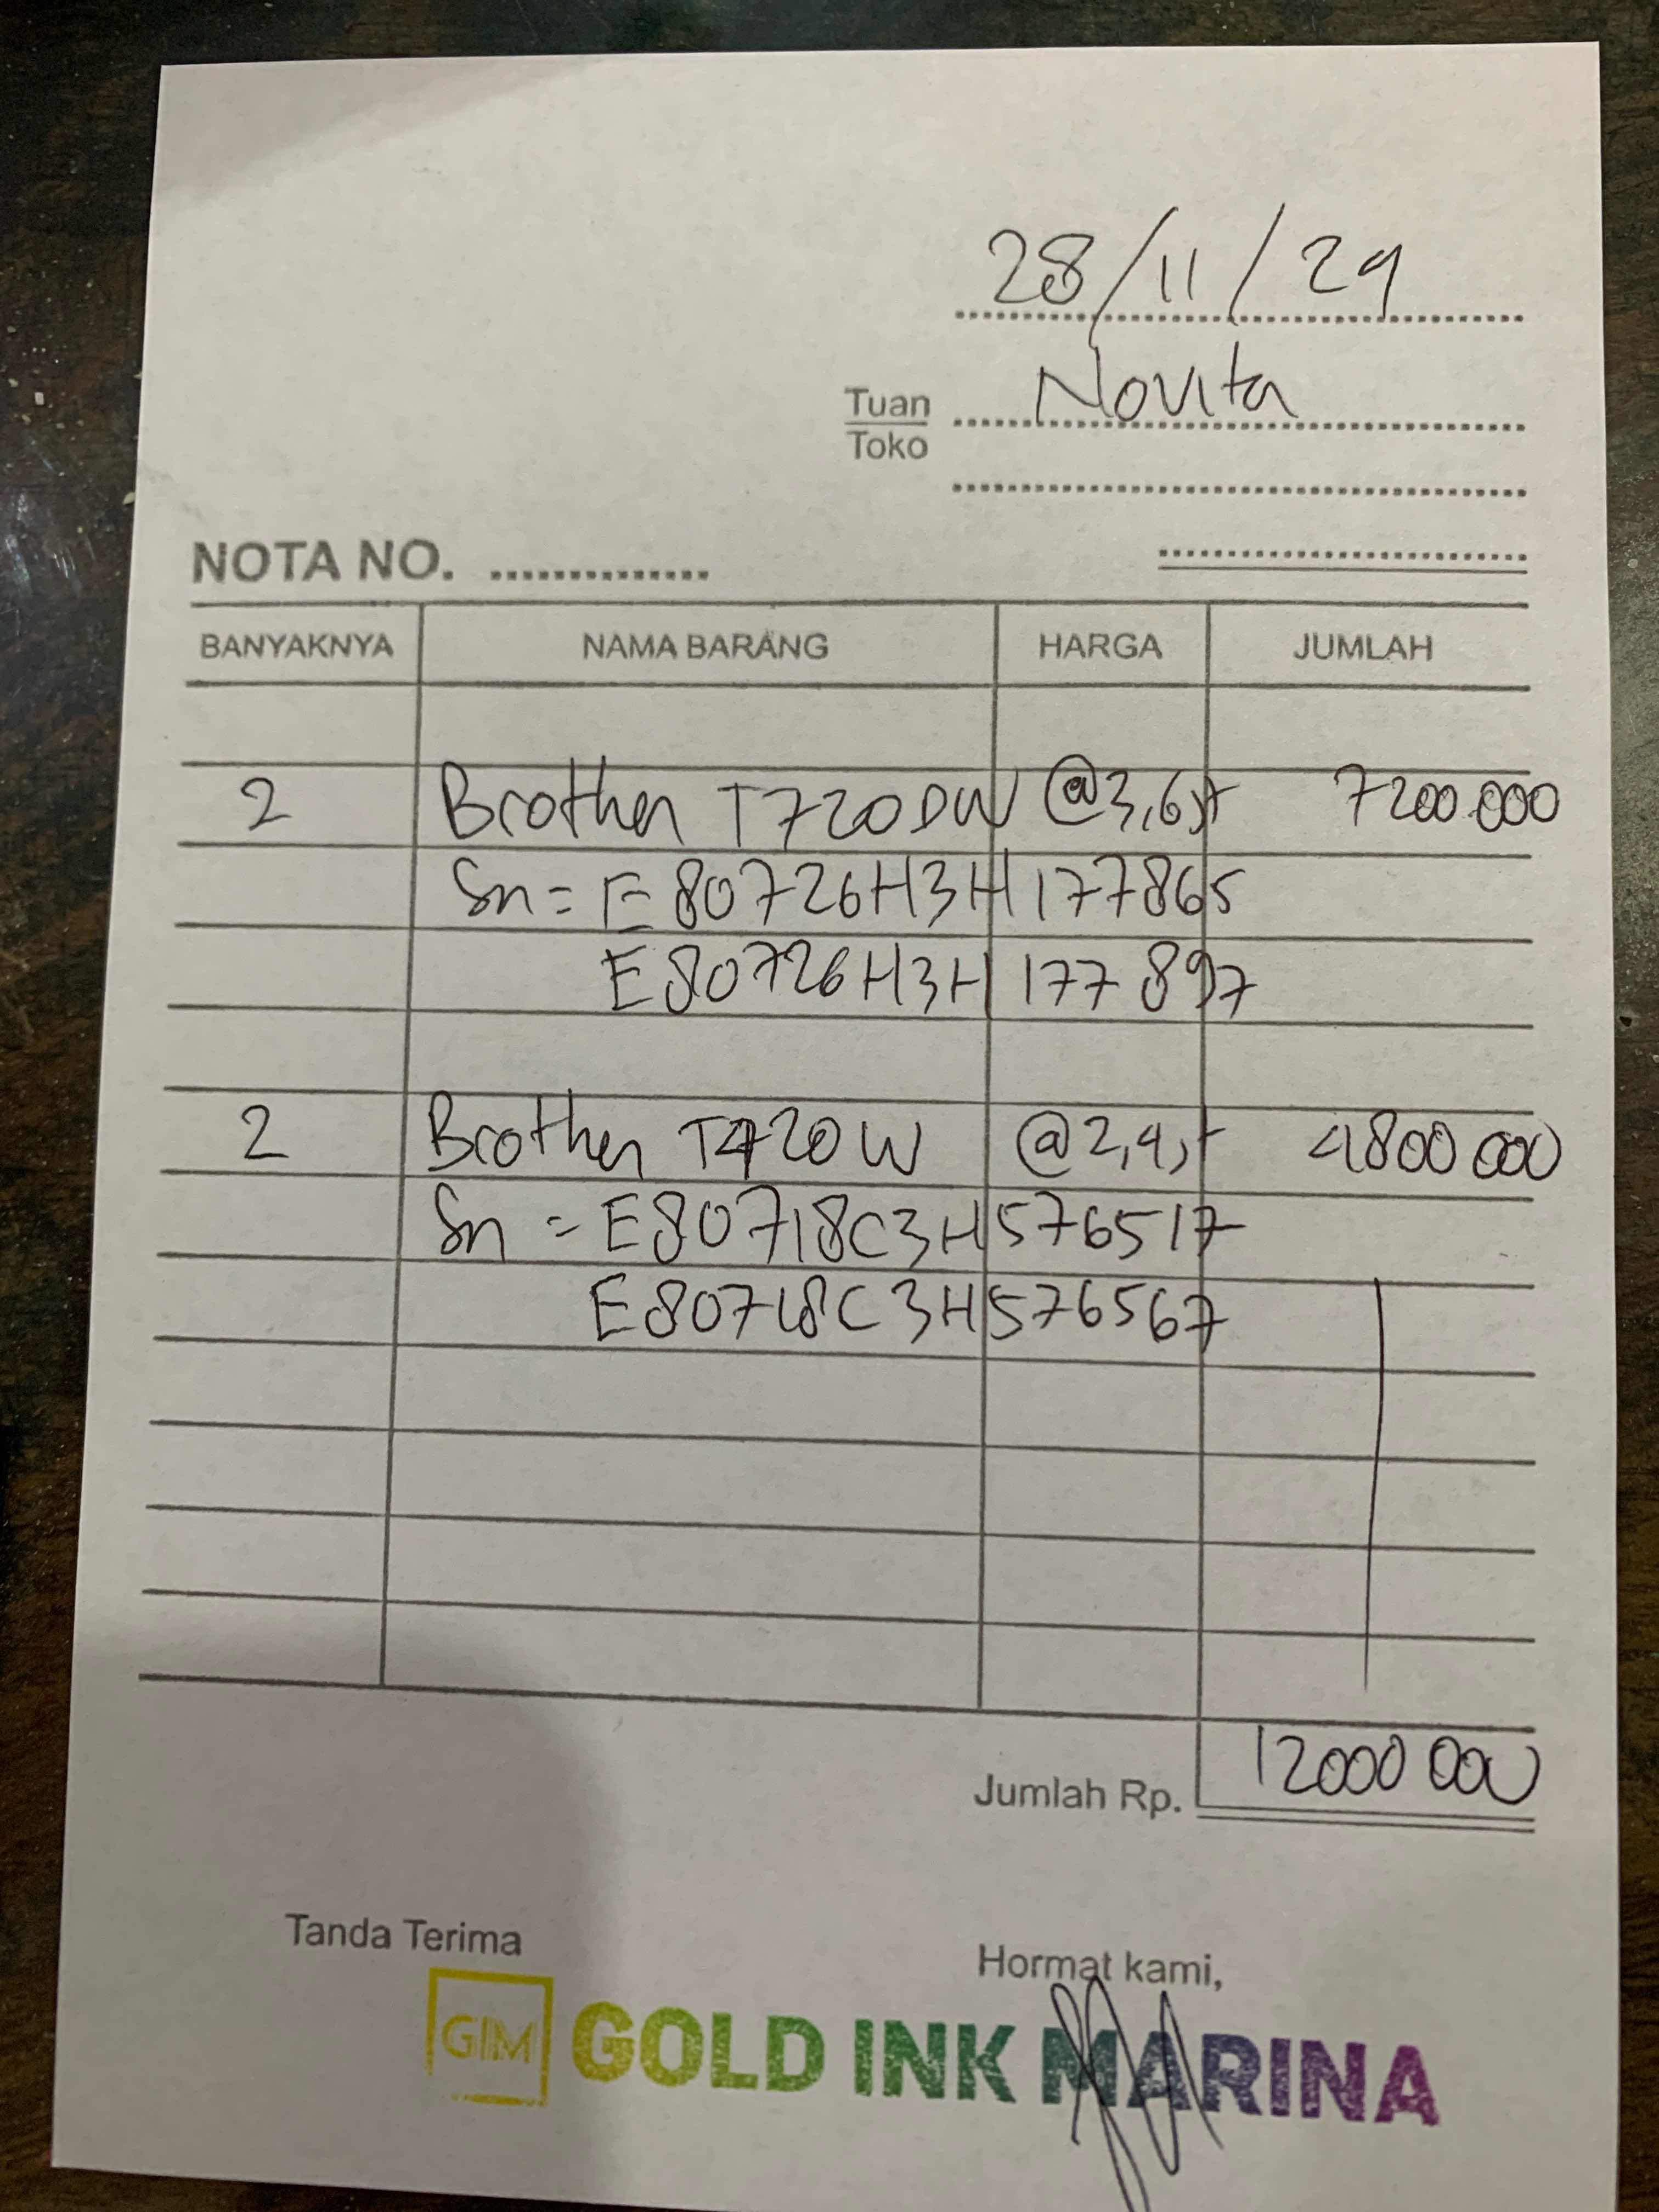 28/11/24
Tuan Novita
Toko
NOTA NO. ..............
BANYAKNYA NAMA BARANG HARGA JUMLAH
2 Brother T720DW @3,6jt 7200.000
Sn = E80726H3H177865
E80726H3H177897
2 Brother T420W @2,4jt 4800 000
Sn = E80718C3H576517
E80718C3H576567
Jumlah Rp. 12000 000
Tanda Terima
Hormat kami,
GIM GOLD INK MARINA